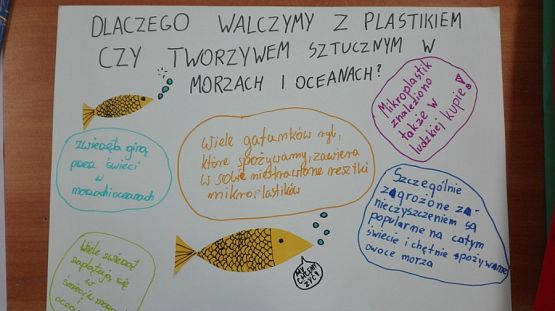 DLACZEGO WALCZYMY Z PLASTIKIEM
CZY TWORZYWEM SZTUCZNYM W
MORZACH I OCEANACH?
Mikroplastik
znaleziono
także w
ludzkiej kupie!
Zwierzęta giną
przez śmieci
w
morzach i oceanach
Wiele gatunków ryb,
które spożywamy, zawiera
w sobie niestrawione resztki
mikroplastików
Szczególnie
zagrożone za-
nieczyszczeniem są
popularne na całym
świecie i chętnie spożywane
owoce morza
Wiele zwierząt
zaplątują się
w
śmieci w morzach
i oceanach
MY CHCEMY
ŻYĆ!